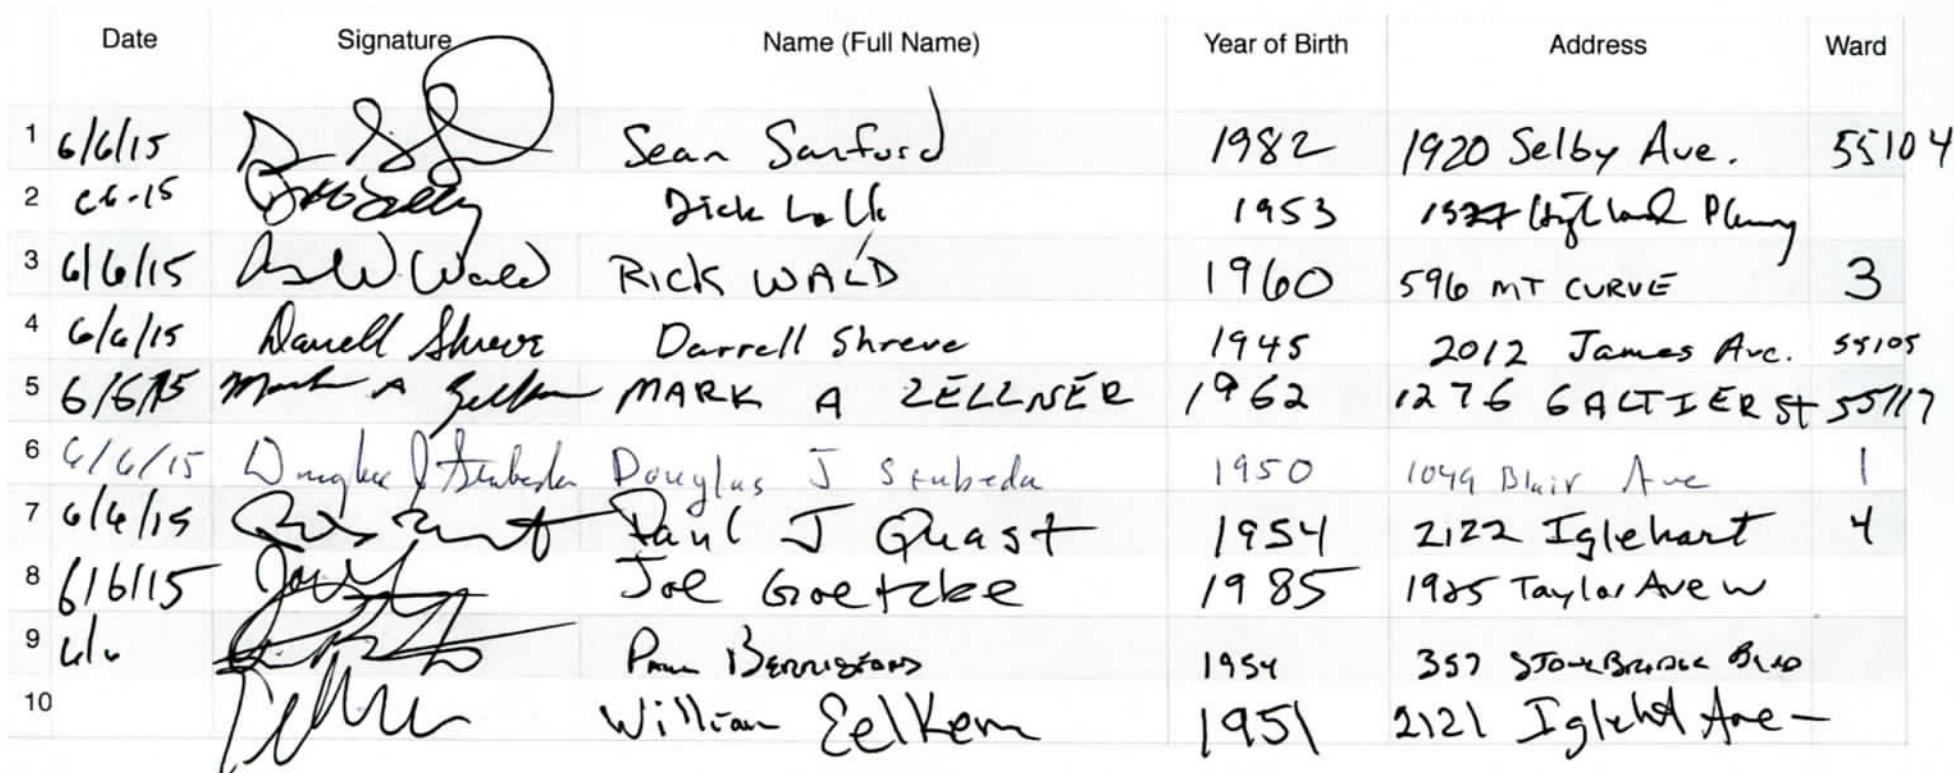 Date Signature Name (Full Name) Year of Birth Address Ward
1 6/6/15 Sean Sanford 1982 1920 Selby Ave. 55104
2 Dick 1953 Highland
3 6/6/15 Wald RICK WALD 1960 596 MT CURVE 3
4 6/6/15 Darrell Shreve Darrell Shreve 1945 2012 James Ave. 55105
5 6/6/15 Mark A Zellner MARK A ZELLNER 1962 1276 GALTIER St 55117
6 6/6/15 Douglas J Stubeda Douglas J Stubeda 1950 1049 Blair Ave 1
7 6/6/15 Paul J Quast 1954 2122 Iglehart 4
8 6/6/15 Joe Goetzke 1985 1925 Taylor Ave W
9 6/6 1954 357 Stonebridge Blvd
10 William Eelkema 1951 2121 Iglehart Ave